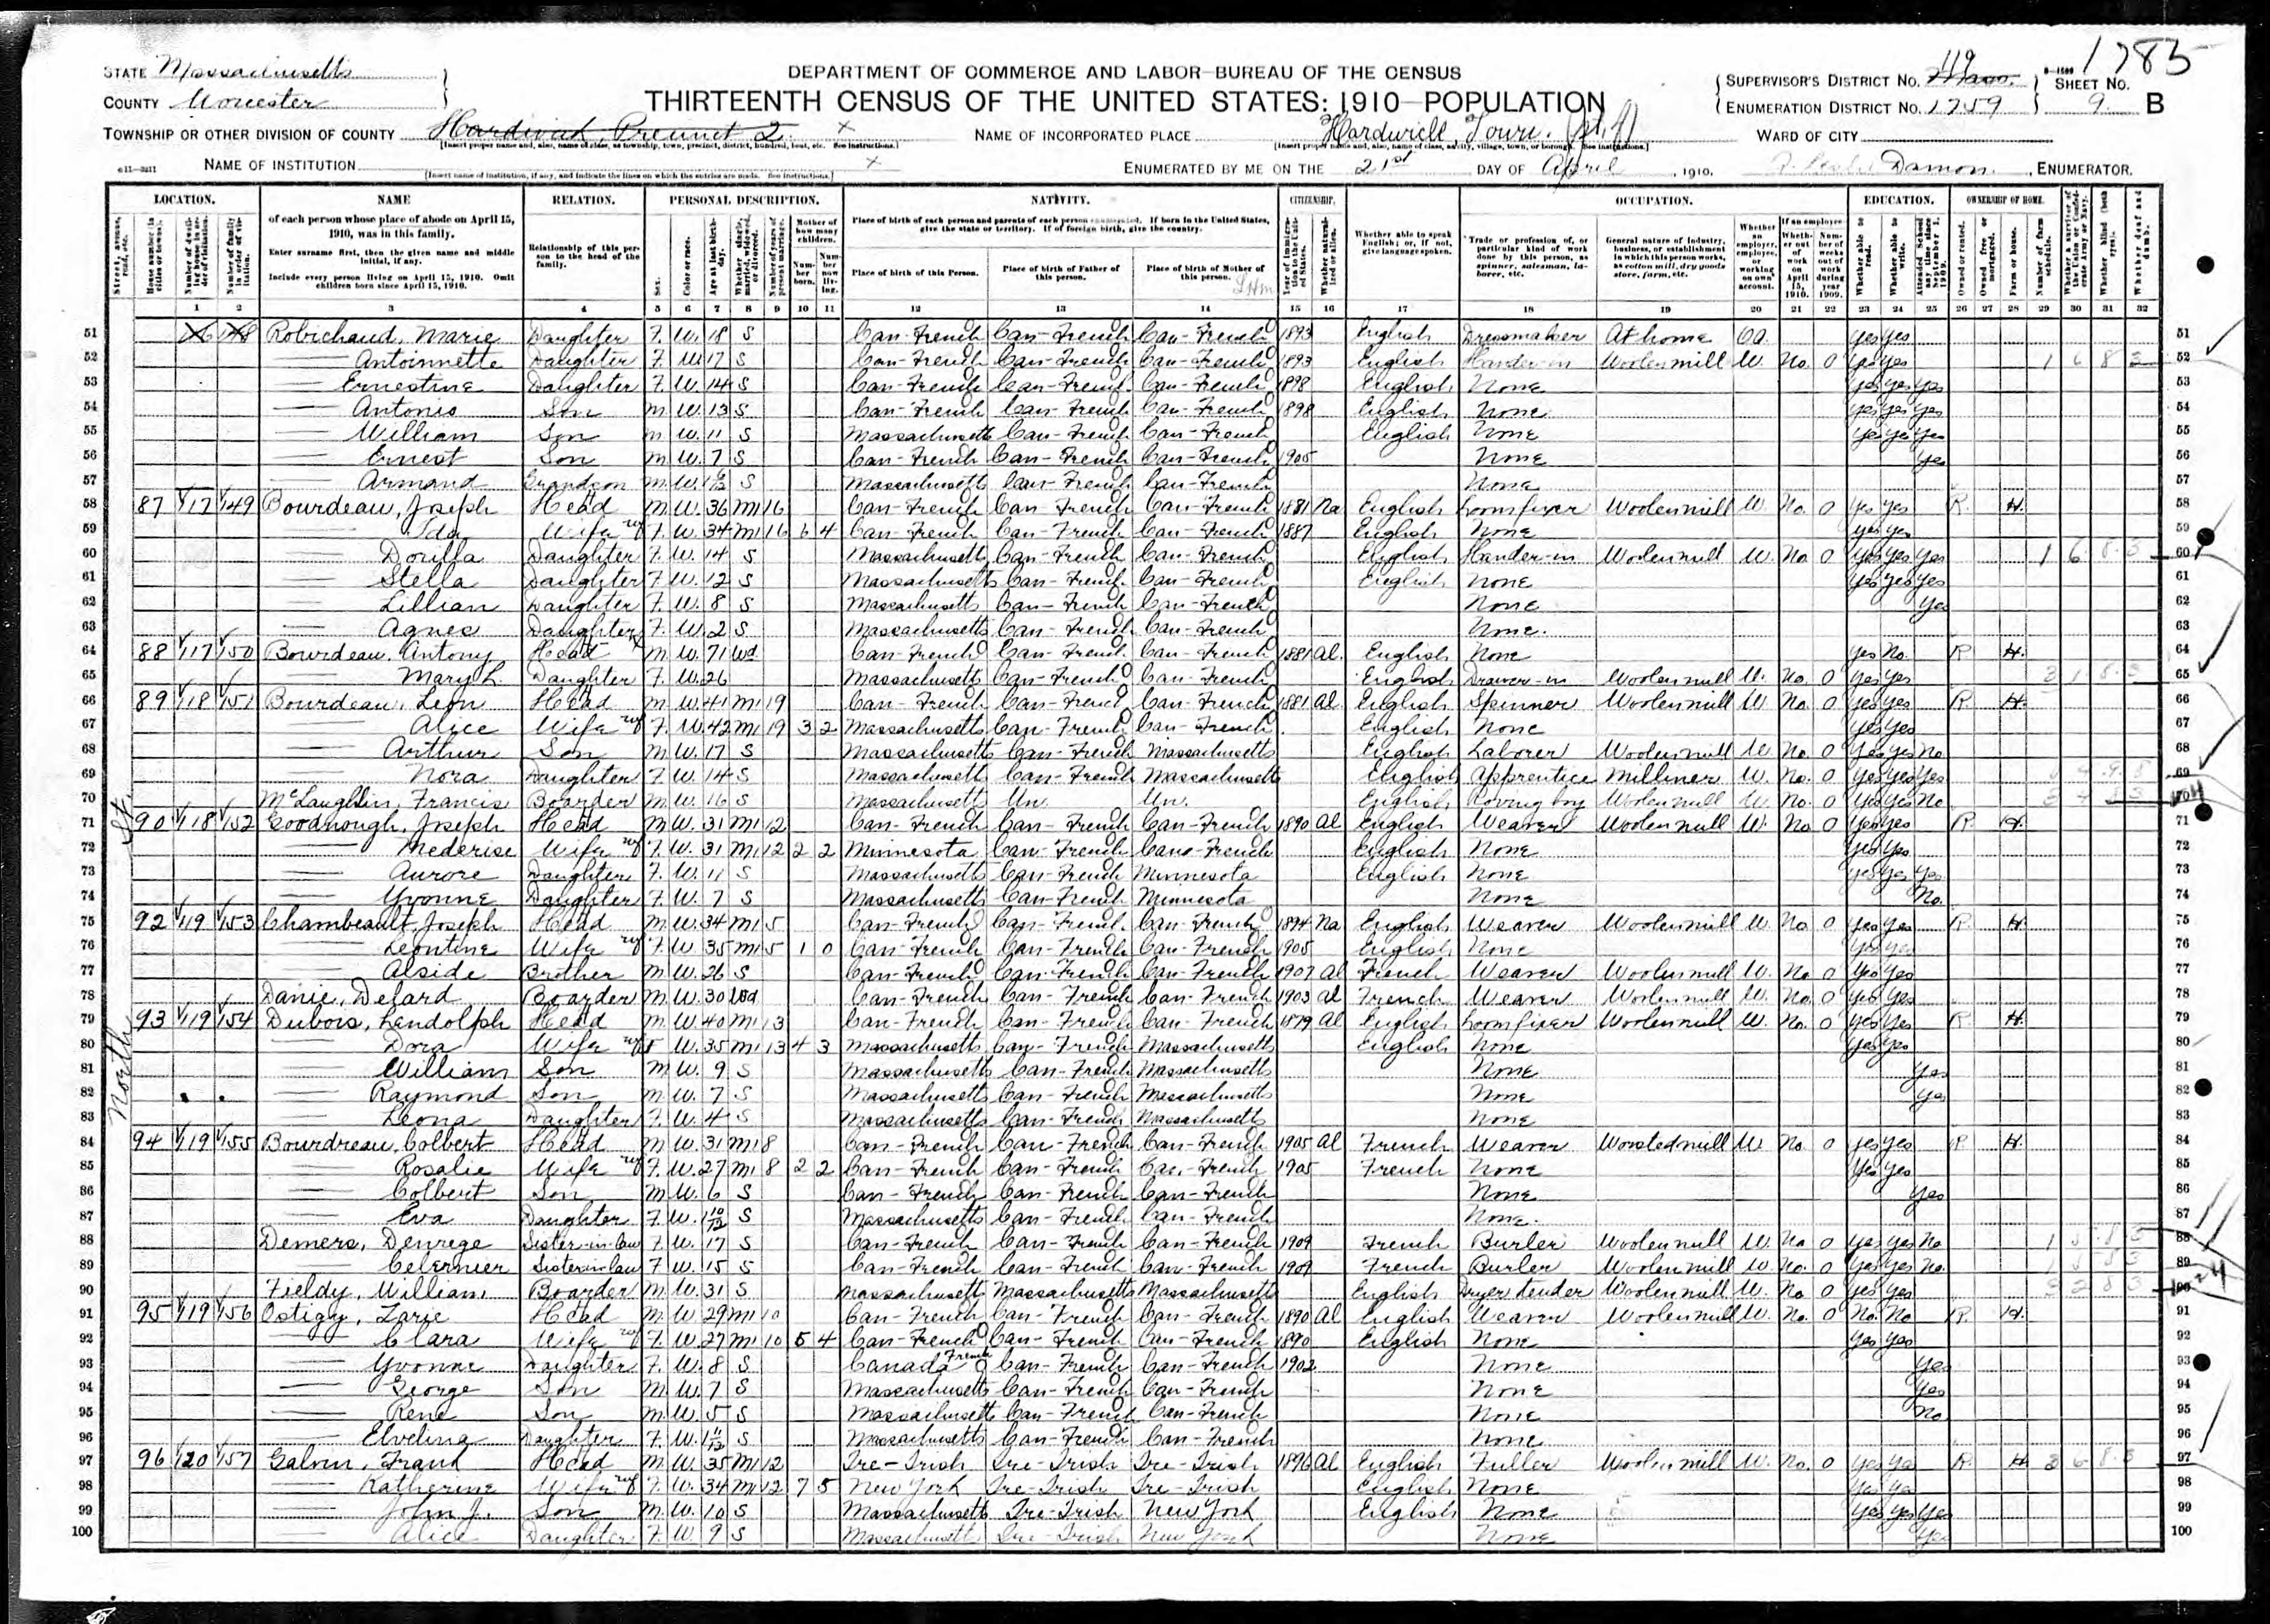 1785
STATE Massachusetts
COUNTY Worcester
DEPARTMENT OF COMMERCE AND LABOR—BUREAU OF THE CENSUS
THIRTEENTH CENSUS OF THE UNITED STATES: 1910—POPULATION
SUPERVISOR'S DISTRICT No. 119
ENUMERATION DISTRICT No. 1759
SHEET No. 9 B
TOWNSHIP OR OTHER DIVISION OF COUNTY Hardwick Precinct 2 X
NAME OF INCORPORATED PLACE Hardwick Town
WARD OF CITY
NAME OF INSTITUTION X
ENUMERATED BY ME ON THE 21st DAY OF April, 1910. Damon, ENUMERATOR.
LOCATION. NAME RELATION. PERSONAL DESCRIPTION. NATIVITY. CITIZENSHIP. OCCUPATION. EDUCATION. OWNERSHIP OF HOME.
of each person whose place of abode on April 15, 1910, was in this family.
Enter surname first, then the given name and middle initial, if any.
Include every person living on April 15, 1910. Omit children born since April 15, 1910.
Relationship of this person to the head of the family.
Place of birth of each person and parents of each person enumerated. If born in the United States, give the state or territory. If of foreign birth, give the country.
Place of birth of this Person. Place of birth of Father of this person. Place of birth of Mother of this person.
Whether able to speak English; or, if not, give language spoken.
Trade or profession of, or particular kind of work done by this person, as spinner, salesman, laborer, etc.
General nature of industry, business, or establishment in which this person works, as cotton mill, dry goods store, farm, etc.
1 2 3 4 5 6 7 8 9 10 11 12 13 14 15 16 17 18 19 20 21 22 23 24 25 26 27 28 29 30 31 32
North St.
51 Robichaud, Marie Daughter F. W. 18 S Can-French Can-French Can-French 1893 English Dressmaker At home OA Yes Yes 51
52 — Antoinnette Daughter F. W. 17 S Can-French Can-French Can-French 1893 English Hander-in Woolen mill W. No. 0 Yes Yes 1 6 8 3 52
53 — Ernestine Daughter F. W. 14 S Can-French Can-French Can-French 1898 English None Yes Yes Yes 53
54 — Antonio Son M W. 13 S Can-French Can-French Can-French 1898 English None Yes Yes Yes 54
55 — William Son M W. 11 S Massachusetts Can-French Can-French English None Yes Yes Yes 55
56 — Ernest Son M W. 7 S Can-French Can-French Can-French 1905 None Yes 56
57 — Armand Grandson M W. S Massachusetts Can-French Can-French None 57
58 87 117 149 Bourdeau, Joseph Head M W. 36 M1 16 Can-French Can French Can-French 1881 Na English Loomfixer Woolen mill W. No. 0 Yes Yes R. H. 58
59 — Ida Wife F. W. 34 M1 16 6 4 Can-French Can-French Can-French 1887 English None Yes Yes 59
60 — Daughter F. W. 14 S Massachusetts Can-French Can-French English Hander-in Woolen mill W. No 0 Yes Yes Yes 1 6 8 3 60
61 — Stella Daughter F. W. 12 S Massachusetts Can-French Can-French English None Yes Yes Yes 61
62 — Lillian Daughter F. W. 8 S Massachusetts Can-French Can-French None Yes 62
63 — Agnes Daughter F. W. 2 S Massachusetts Can-French Can-French None. 63
64 88 117 150 Bourdeau, Antony Head M W. 71 Wd Can-French Can-French Can-French 1881 Al. English None Yes No. R H. 64
65 — Mary L. Daughter F. W. 26 Massachusetts Can-French Can-French English Drawer-in Woolen mill W. No. 0 Yes Yes 3 1 8 3 65
66 89 118 151 Bourdeau, Leon Head M W. 41 M1 19 Can-French Can-French Can-French 1881 Al. English Spinner Woolen mill W No. 0 Yes Yes R H. 66
67 — Alice Wife F. W. 42 M1 19 3 2 Massachusetts Can-French Can-French English None Yes Yes 67
68 — Arthur Son M W. 17 S Massachusetts Can-French Massachusetts English Laborer Woolen mill W No. 0 Yes Yes No 68
69 — Nora Daughter F. W. 14 S Massachusetts Can-French Massachusetts English Apprentice Milliner W. No. 0 Yes Yes Yes 69
70 McLaughlin, Francis Boarder M W. 16 S Massachusetts Un. Un. English Roving boy Woolen mill W No. 0 Yes Yes No 70
71 90 118 152 Goodnough, Joseph Head M W. 31 M1 12 Can-French Can-French Can-French 1890 Al English Weaver Woolen mill W. No 0 Yes Yes R. H. 71
72 — Mederise Wife F. W. 31 M1 12 2 2 Minnesota Can-French Can-French English None Yes Yes 72
73 — Aurore Daughter F. W. 11 S Massachusetts Can-French Minnesota English None Yes Yes Yes 73
74 — Yvonne Daughter F. W. 7 S Massachusetts Can-French Minnesota None No. 74
75 92 119 153 Chambeault, Joseph Head M W. 34 M1 5 Can-French Can-French Can-French 1894 Na English Weaver Woolen mill W. No 0 Yes Yes R. H. 75
76 — Leontine Wife F. W. 35 M1 5 1 0 Can-French Can-French Can-French 1905 English None Yes Yes 76
77 — Alside Brother M W. 26 S Can-French Can-French Can-French 1907 Al French Weaver Woolen mill W. No 0 Yes Yes 77
78 Danie, Delard Boarder M W. 30 Wd Can-French Can-French Can-French 1903 Al French Weaver Woolen mill W. No. 0 Yes Yes 78
79 93 119 154 Dubois, Landolph Head M W. 40 M1 13 Can-French Can-French Can-French 1879 Al English Loomfixer Woolen mill W. No. 0 Yes Yes R. H. 79
80 — Dora Wife F W. 35 M1 13 4 3 Massachusetts Can-French Massachusetts English None Yes Yes 80
81 — William Son M W. 9 S Massachusetts Can-French Massachusetts None Yes 81
82 — Raymond Son M W. 7 S Massachusetts Can-French Massachusetts None Yes 82
83 — Leona Daughter F. W. 4 S Massachusetts Can-French Massachusetts None 83
84 94 119 155 Bourdreau, Colbert Head M W. 31 M1 8 Can-French Can-French Can-French 1905 Al French Weaver Worsted mill W No. 0 Yes Yes R. H. 84
85 — Rosalie Wife F. W. 27 M1 8 2 2 Can-French Can-French Can-French 1905 French None Yes Yes 85
86 — Colbert Son M W. 6 S Can-French Can-French Can-French None Yes 86
87 — Eva Daughter F. W. 1 10/12 S Massachusetts Can-French Can-French None. 87
88 Demers, Denrege Sister-in-law F. W. 17 S Can-French Can-French Can-French 1909 French Burler Woolen mill W. No 0 Yes Yes No 88
89 — Sister in law F W. 15 S Can-French Can-French Can-French 1909 French Burler Woolen mill W. No. 0 Yes Yes No. 89
90 Fieldy, William Boarder M W. 31 S Massachusetts Massachusetts Massachusetts English Dryer tender Woolen mill W. No 0 Yes Yes 3 2 8 3 90
91 95 119 156 Ostigy, Zarie Head M W. 29 M1 10 Can-French Can-French Can-French 1890 Al English Weaver Woolen mill W. No. 0 No. No R. H. 91
92 — Clara Wife F. W. 27 M1 10 5 4 Can-French Can-French Can-French 1890 English None Yes Yes 92
93 — Yvonne Daughter F. W. 8 S Canada French Can-French Can-French 1902 None Yes 93
94 — George Son M W. 7 S Massachusetts Can-French Can-French None Yes 94
95 — Rene Son M W. 5 S Massachusetts Can-French Can-French None No 95
96 — Elvelina Daughter F. W. 1 11/12 S Massachusetts Can-French Can-French None 96
97 96 120 157 Galvin, Frank Head M W. 35 M1 12 Ire-Irish Ire-Irish Ire-Irish 1896 Al English Fuller Woolen mill W. No. 0 Yes Yes R. H 3 6 8 3 97
98 — Katherine Wife F. W. 34 M1 12 7 5 New York Ire-Irish Ire-Irish English None Yes Yes 98
99 — John J. Son M W. 10 S Massachusetts Ire-Irish New York English None Yes Yes Yes 99
100 — Alice Daughter F. W. 9 S Massachusetts Ire-Irish New York None Yes 100